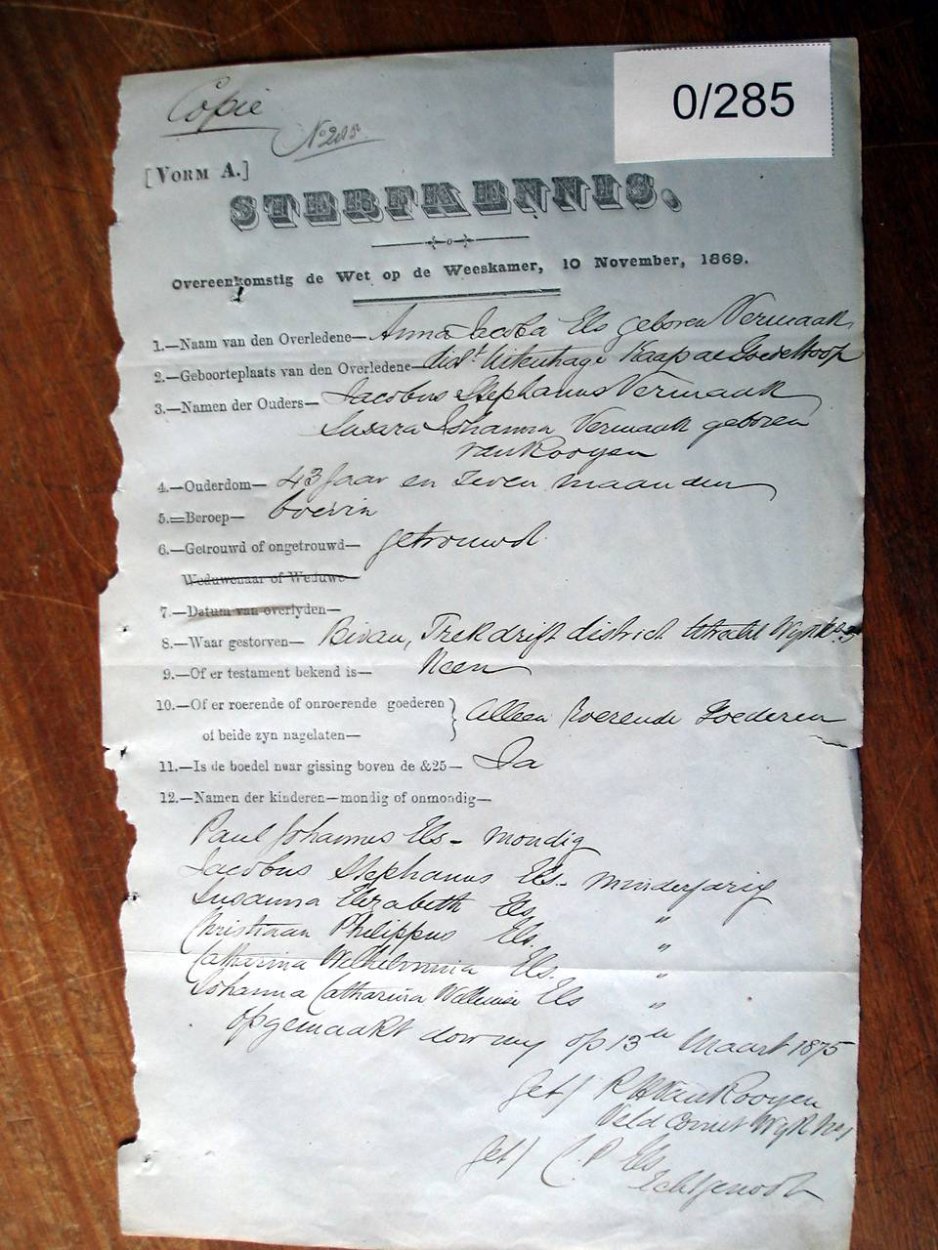 Copie
0/285
No 285
[VORM A.]
STERFKENNIS.
Overeenkomstig de Wet op de Weeskamer, 10 November, 1869.
1.—Naam van den Overledene— Anna Jacoba Els geboren Vermaak
2.—Geboorteplaats van den Overledene— dist Uitenhage Kaap de Goede Hoop
3.—Namen der Ouders— Jacobus Stephanus Vermaak
Johanna Vermaak geboren
van Rooyen
4.—Ouderdom— 43 Jaar en zeven maanden
5.—Beroep— boerin
6.—Getrouwd of ongetrouwd— getrouwd
Weduwenaar of Weduwe—
7.—Datum van overlyden—
8.—Waar gestorven— Trekdrift district Utrecht Wyk
9.—Of er testament bekend is— Neen
10.—Of er roerende of onroerende goederen } Alleen Roerende Goederen
of beide zyn nagelaten—
11.—Is de boedel naar gissing boven de &25— Ja
12.—Namen der kinderen—mondig of onmondig—
Paul Johannes Els - mondig
Jacobus Stephanus Els - minderjarig
Susanna Elizabeth Els "
Christiaan Philippus Els. "
Catharina Wilhelmina Els. "
Johanna Catharina Els "
opgemaakt door my op 13en Maart 1875
Get/ van Rooyen
Veld Cornet Wyk No 1
Get/ C. P. Els
Echtgenoot